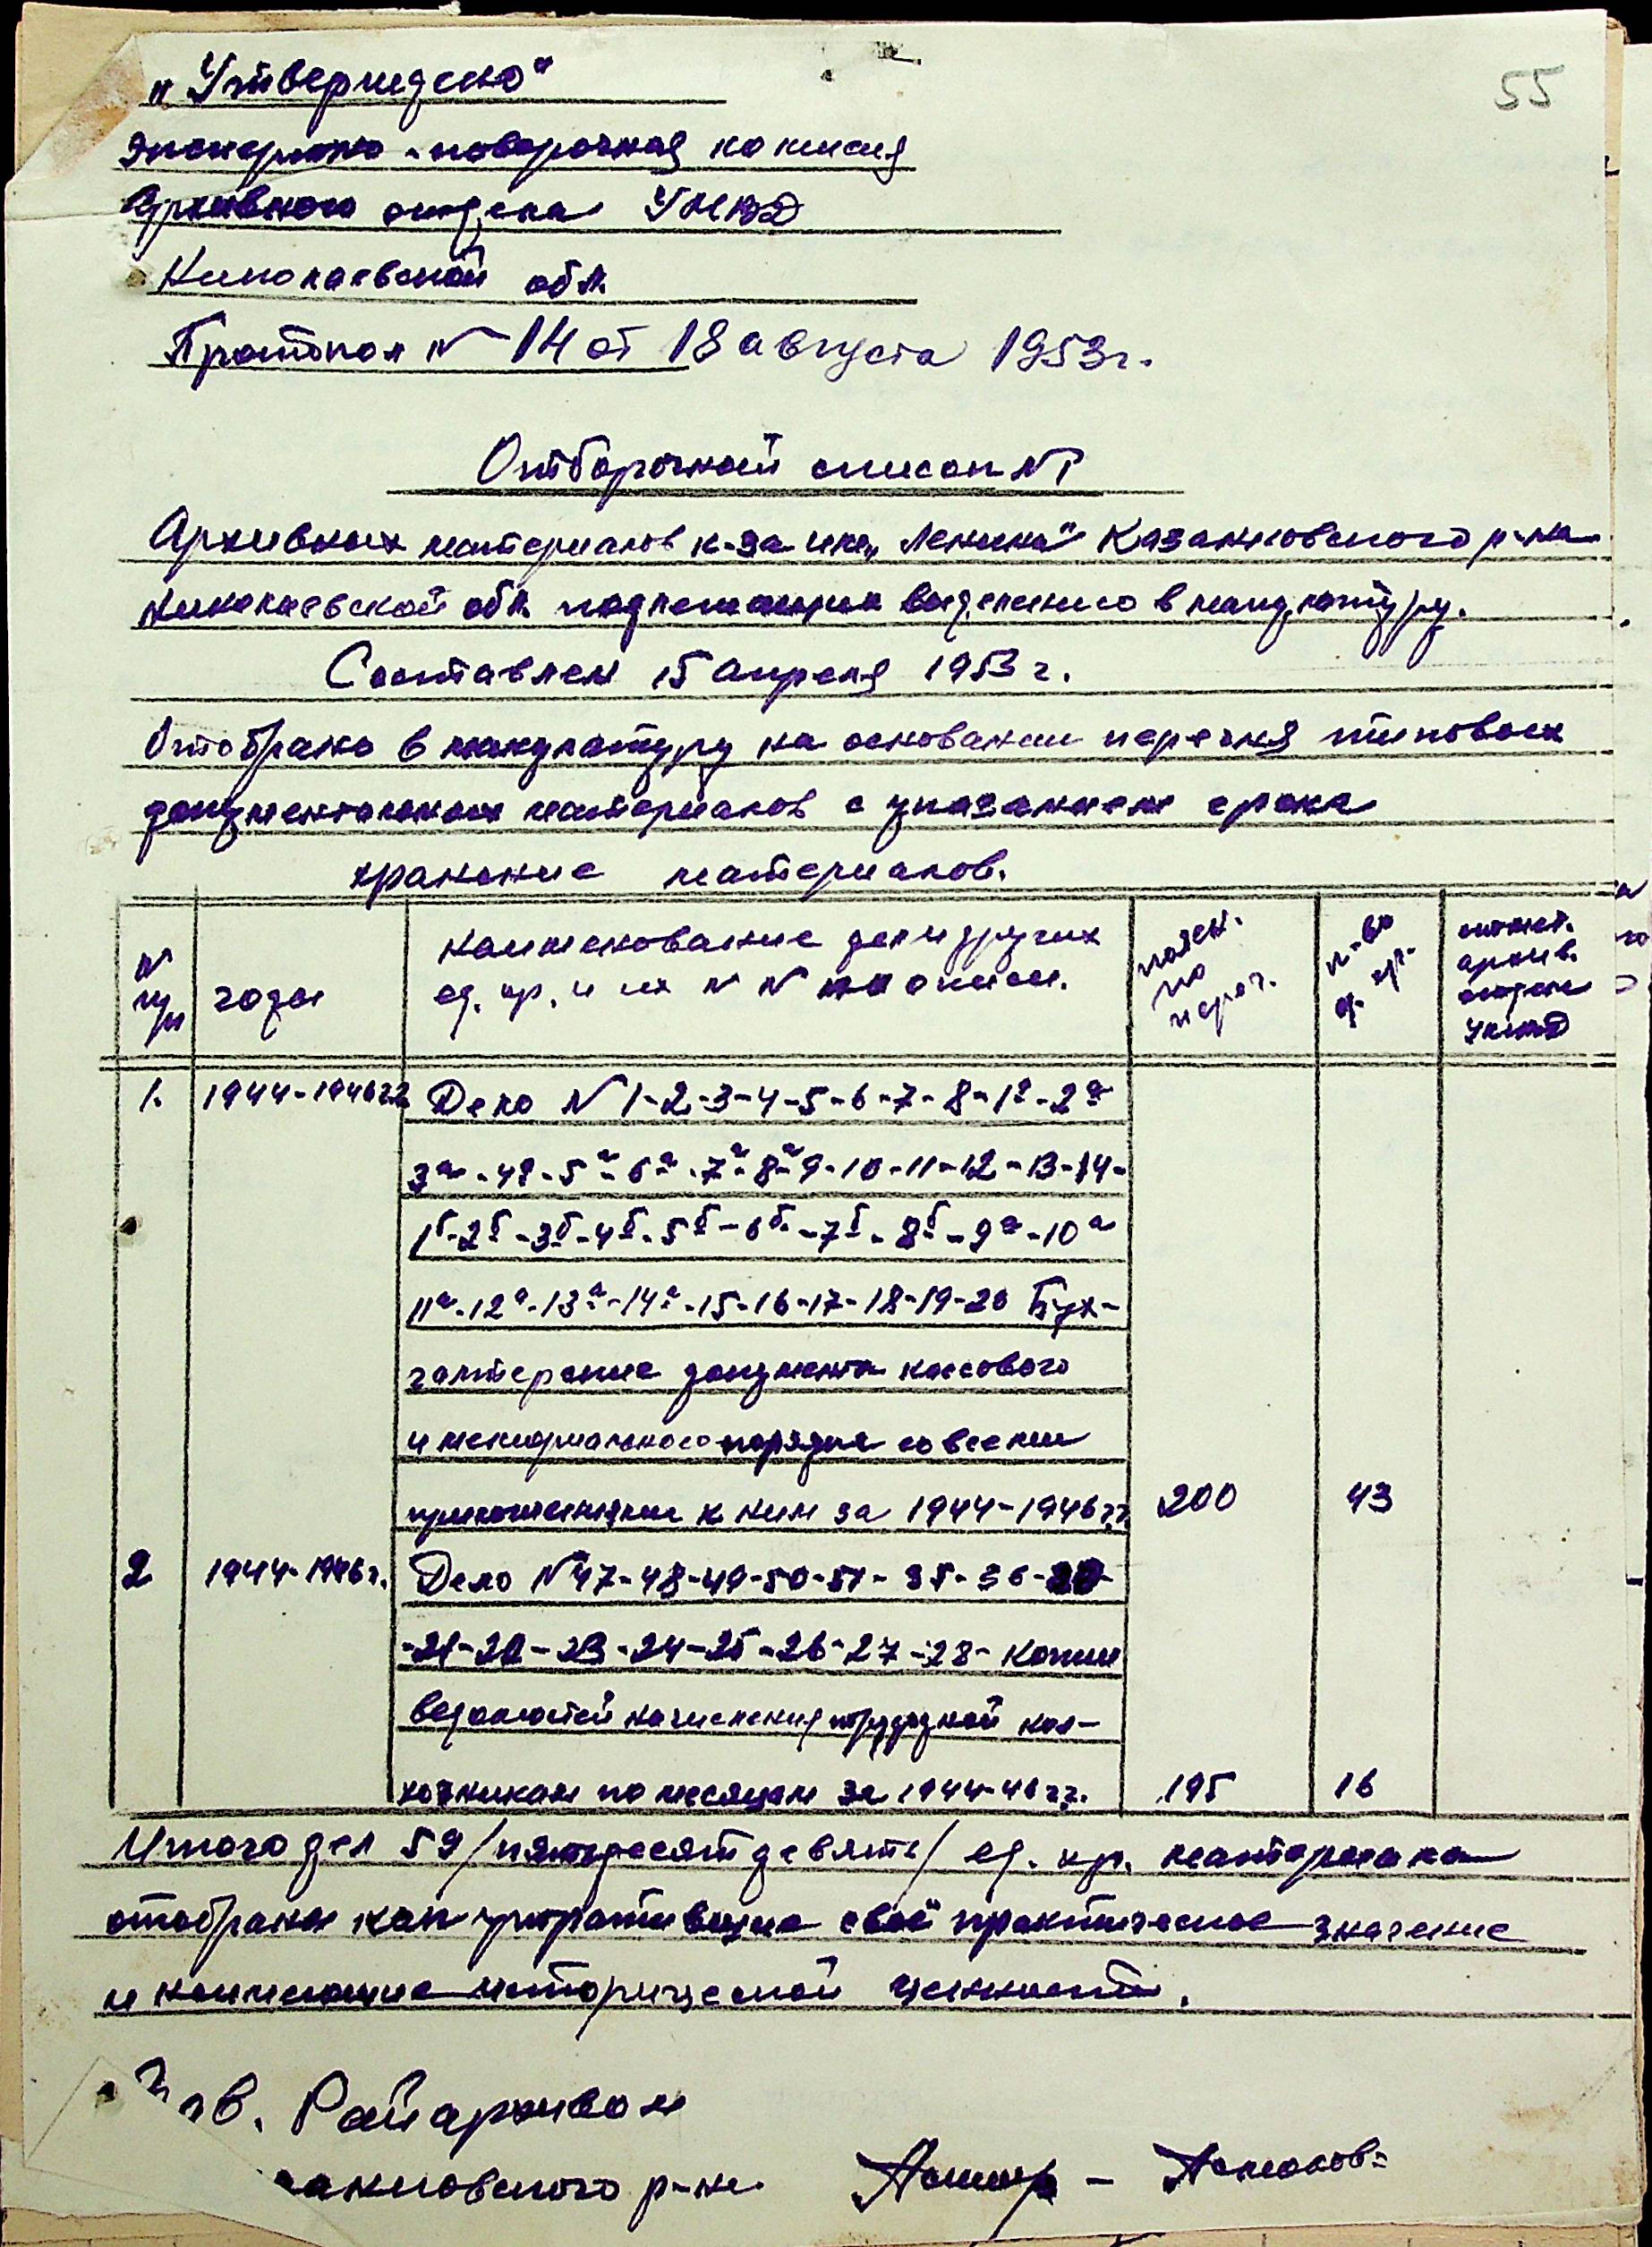 55
„Утверждено"
Экспертно-поверочная комисия
Архивного отдела УМВД
Николаевской обл.
Протокол № 14 от 18 августа 1953 г.
Отборочный список № 1
Архивных материалов к-за им „Ленина" Казанковского р-на
Николаевской обл. подлежащих выделению в макулатуру.
Составлен 15 апреля 1953 г.
Отобрано в макулатуру на основании перечня типовых
документальных материалов с указанием срока
хранение материалов.
№ п/п | годы | наименование дел и других ед. хр. и их № № по описи. | по переч. | к-во ед. хр. | отмет. архив. отдела УМВД
1. | 1944-1946 г.г. | Дело № 1-2-3-4-5-6-7-8-1а-2а
3а-4а-5а-6а-7а-8а-9-10-11-12-13-14-
1б-2б-3б-4б-5б-6б-7б-8б-9а-10а
11а-12а-13а-14а-15-16-17-18-19-20 Бух-
галтерские документы кассового
и мемориального порядка со всеми
приложениями к ним за 1944-1946 г.г. | 200 | 43
2 | 1944-1946 г. | Дело № 47-48-49-50-51-35-36-
-21-22-23-24-25-26-27-28- Копии
ведомостей начисления трудодней кол-
хозникам по месяцам за 1944-46 г.г. | 195 | 16
Итого дел 59 /пятьдесят девять/ ед. хр. материала
отобраны как утратившие своё практическое значение
и неимеющие исторической ценности.
Зав. Райархивом
анковского р-на